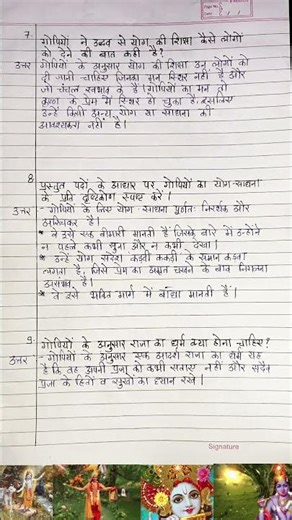 7. गोपियों ने उद्धव से योग की शिक्षा कैसे लोगों
को देने की बात कही है?
उत्तर गोपियों के अनुसार योग की शिक्षा उन लोगों को
दी जानी चाहिए जिनका मन स्थिर नहीं है और
जो चंचल स्वभाव के हैं। गोपियों का मन तो
कृष्ण के प्रेम में स्थिर हो चुका है, इसलिए
उन्हें किसी अन्य योग या साधना की
आवश्यकता नहीं है।
8. प्रस्तुत पदों के आधार पर गोपियों का योग-साधना
के प्रति दृष्टिकोण स्पष्ट करें।
उत्तर - गोपियों के लिए योग-साधना पूर्णतः निरर्थक और
* वे उसे एक बीमारी मानती हैं जिसके बारे में उन्होंने
न पहले कभी सुना और न कभी देखा।
* उन्हें योग संदेश कड़वी ककड़ी के समान कड़वा
लगता है, जिसे प्रेम का अमृत चखने के बाद निगलना
असंभव है।
* वे इसे भक्ति मार्ग में बाधा मानती हैं।
9. गोपियों के अनुसार राजा का धर्म क्या होना चाहिए?
उत्तर - गोपियों के अनुसार एक आदर्श राजा का धर्म यह
है कि वह अपनी प्रजा को कभी सताए नहीं और सदैव
प्रजा के हितों व सुखों का ध्यान रखे।
Signature